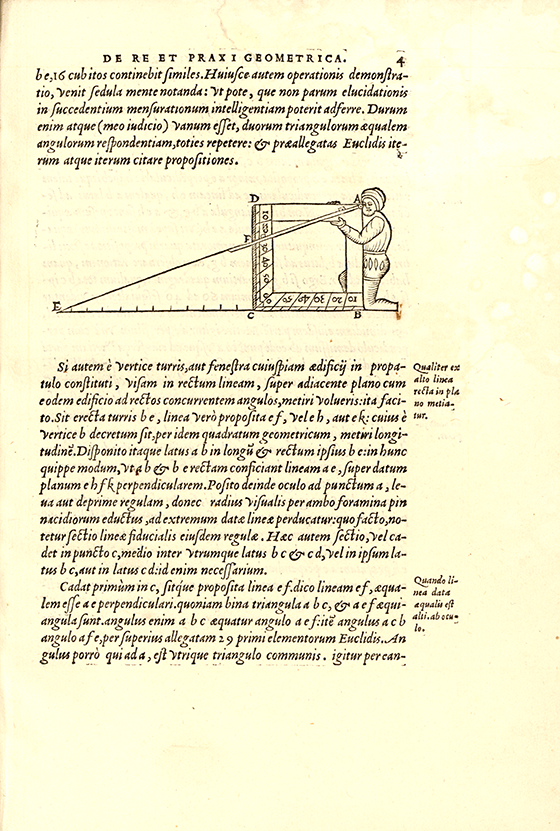 DE RE ET PRAXI GEOMETRICA. 4
be,16 cubitos continebit similes. Huiusce autem operationis demonstra-
tio, venit sedula mente notanda: vt pote, que non parum elucidationis
in succedentium mensurationum intelligentiam poterit adferre. Durum
enim atque (meo iudicio) vanum esset, duorum triangulorum æqualem
angulorum respondentiam, toties repetere: & præallegatas Euclidis ite-
rum atque iterum citare propositiones.
D A
F
E C B
10 20 30 40 50 60
Si autem è vertice turris, aut fenestra cuiuspiam ædificij in propa-
tulo constituti, visam in rectum lineam, super adiacente plano cum
eodem edificio ad rectos concurrentem angulos, metiri volueris: ita faci-
to. Sit erecta turris b e, linea verò proposita e f, vel e h, aut e k: cuius è
vertice b decretum sit, per idem quadratum geometricum, metiri longi-
tudinē. Disponito itaque latus a b in longū & rectum ipsius b e: in hunc
quippe modum, vt a b & b e rectam conficiant lineam a e, super datum
planum e h f k perpendicularem. Posito deinde oculo ad punctum a, le-
ua aut deprime regulam, donec radius visualis per ambo foramina pin
nacidiorum eductus, ad extremum datæ lineæ perducatur: quo facto, no-
tetur sectio lineæ fiducialis eiusdem regulæ. Hæc autem sectio, vel ca-
det in puncto c, medio inter vtrumque latus b c & c d, vel in ipsum la-
tus b c, aut in latus c d: id enim necessarium.
Qualiter ex
alto linea
recta in pla
no metia-
tur.
Cadat primùm in c, sitque proposita linea e f. dico lineam e f, æqua-
lem esse a e perpendiculari. quoniam bina triangula a b c, & a e f æqui-
angula sunt. angulus enim a b c æquatur angulo a e f: itē angulus a c b
angulo a f e, per superius allegatam 29 primi elementorum Euclidis. An
gulus porrò qui ad a, est vtrique triangulo communis. igitur per ean-
Quando li-
nea data
æqualis est
alti.
lo.